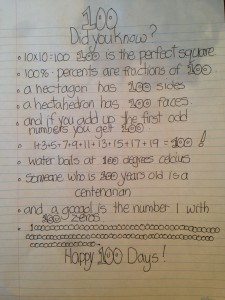 100
Did you know?
• 10x10=100 100 is the perfect square
• 100% - percents are fractions of 100
• a hectagon has 100 sides
• a hectahedron has 100 faces.
• and if you add up the first odd
numbers you get 100
• 1+3+5+7+9+11+13+15+17+19=100!
• water boils at 100 degrees celcius
• Someone who is 100 years old is a
centenarian
• and a googol is the number 1 with
100 zeros
Happy 100 Days!